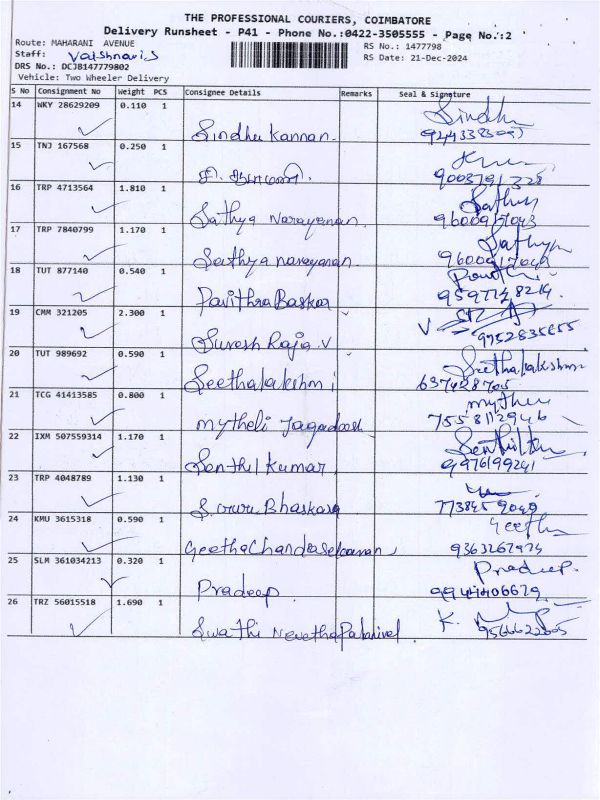 THE PROFESSIONAL COURIERS, COIMBATORE
Delivery Runsheet - P41 - Phone No.:0422-3505555 - Page No.:2
Route: MAHARANI AVENUE RS No.: 1477798
Staff: Vaishnavi.S RS Date: 21-Dec-2024
DRS No.: DCJB147779802
Vehicle: Two Wheeler Delivery
S No Consignment No Weight PCS Consignee Details Remarks Seal & Signature
14 WKY 28629209 0.110 1 Sindhu Kannan. Sindhu
15 TNJ 167568 0.250 1
16 TRP 4713564 1.810 1 Sathya Narayanan. Sathya
9600917043
17 TRP 7840799 1.170 1 Sathya narayanan. Sathya
18 TUT 877140 0.540 1 Pavithra Baskar
9597748214.
19 CMM 321205 2.300 1 Suresh Raja.V
20 TUT 989692 0.590 1 Seethalakshmi Seethalakshmi
21 TCG 41413585 0.800 1 Mytheli Jagadeesh
22 IXM 507559314 1.170 1 Senthil Kumar
9976199241
23 TRP 4048789 1.130 1 Bhaskara
7738459049
24 KMU 3615318 0.590 1 Geetha Chandrasekaran Geetha
9363267974
25 SLM 361034213 0.320 1 Pradeep Pradeep.
9944406679
26 TRZ 56015518 1.690 1 Swathi Nevetha Palanivel K.